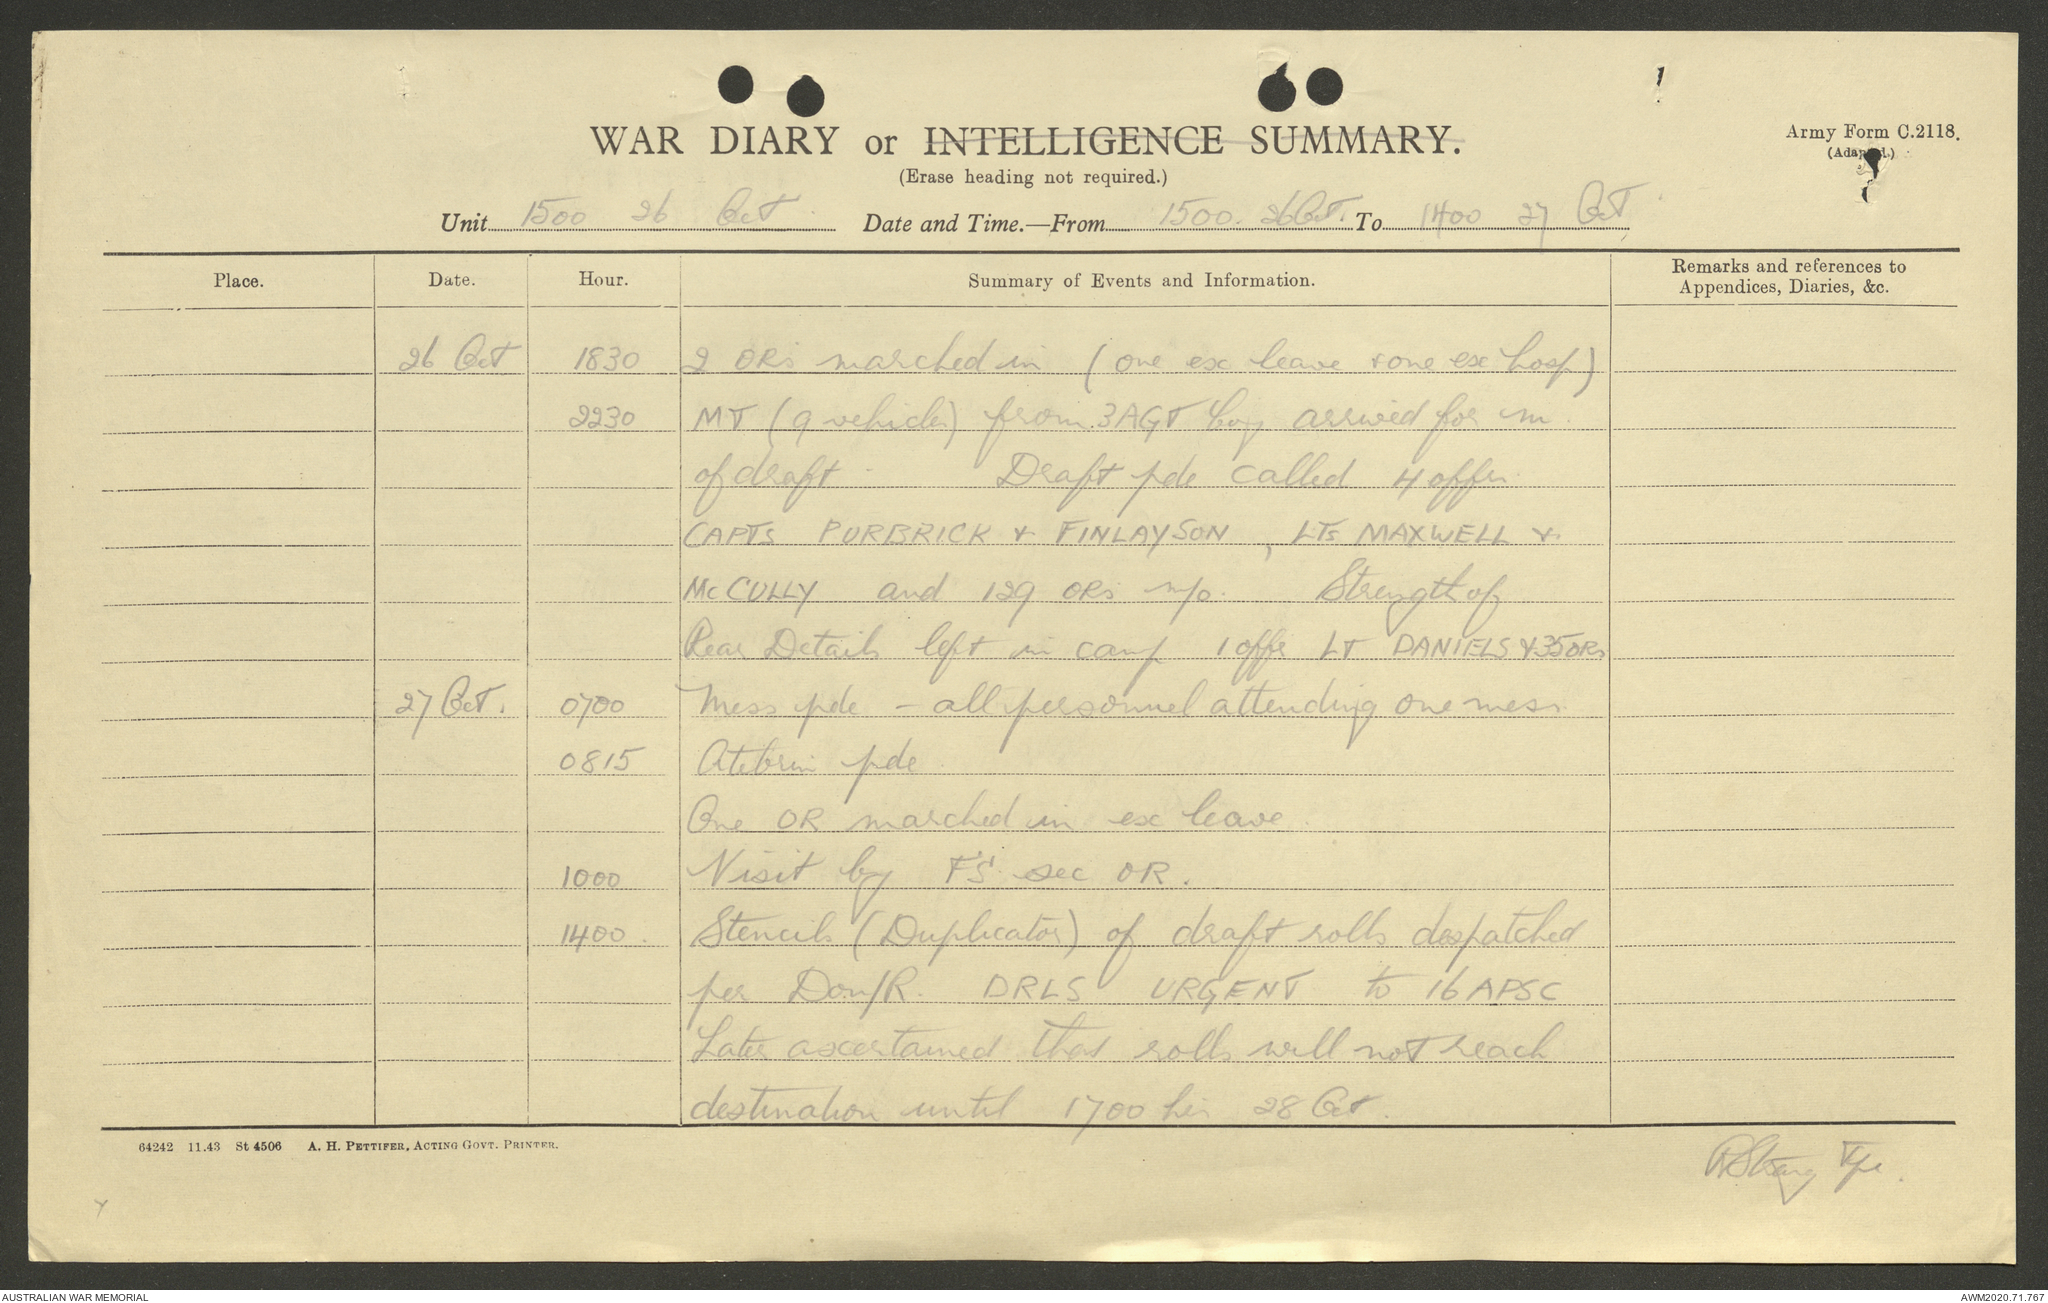 WAR DIARY or INTELLIGENCE SUMMARY.
Army Form C.2118.
(Adapted.)
(Erase heading not required.)
Unit 1500 26 Oct Date and Time.—From 1500. 26 Oct. To 1400 27 Oct
Place. Date. Hour. Summary of Events and Information. Remarks and references to
Appendices, Diaries, &c.
26 Oct 1830 2 ORs marched in (one ex leave & one ex hosp)
2230 MT (9 vehicles) from 3AGT Coy arrived for m
of draft. Draft pde called 4 offrs
CAPTS PURBRICK & FINLAYSON, LTs MAXWELL &
McCULLY and 129 ORs m/o. Strength of
Rear Details left in camp 1 offr LT DANIELS & 35 ORs
27 Oct. 0700 Mess pde - all personnel attending one mess
0815 Atebrin pde
One OR marched in ex leave.
1000 Visit by FS sec OR.
1400. Stencils (Duplicator) of draft rolls despatched
per Don/R. DRLS URGENT to 16 APSC
Later ascertained that rolls will not reach
destination until 1700 hrs 28 Oct.
64242 11.43 St 4506 A. H. PETTIFER, ACTING GOVT. PRINTER.
AUSTRALIAN WAR MEMORIAL
AWM2020.71.767